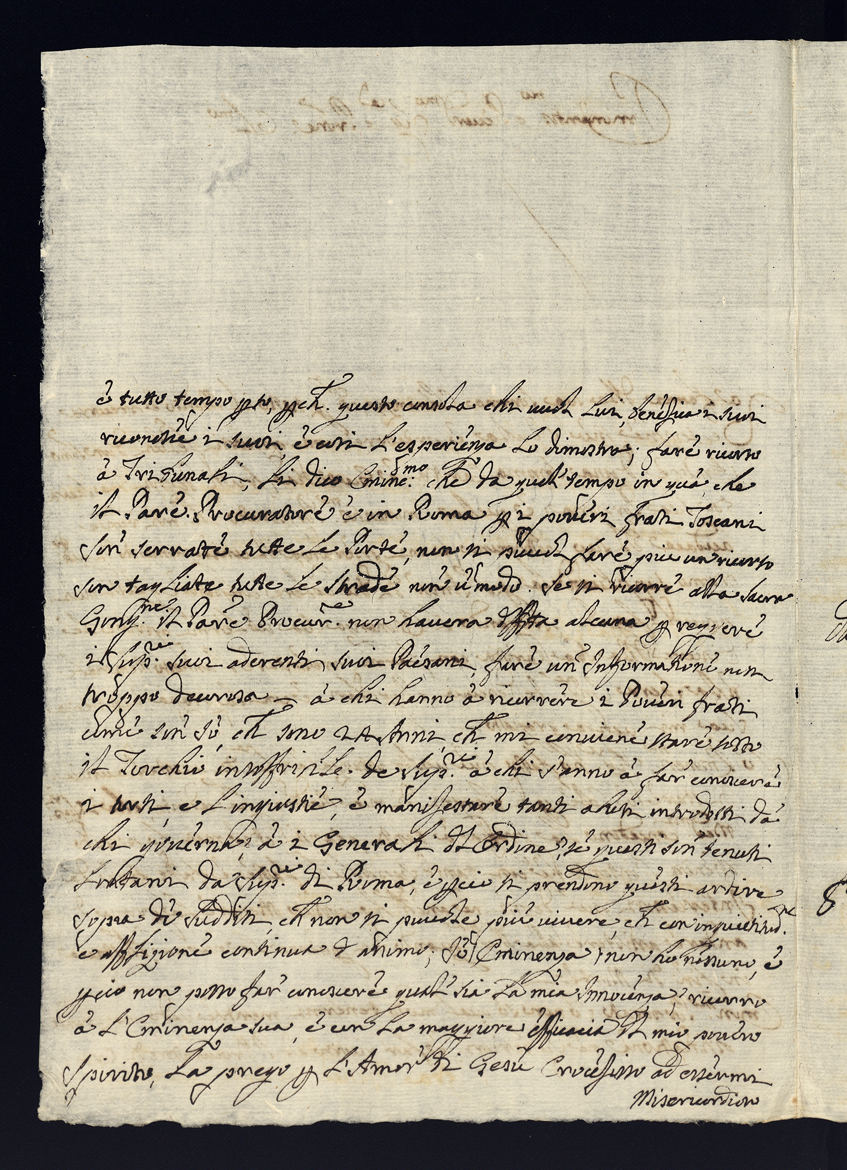 è tutto tempo p̱so, p̱ch. questo consola chi vuol Lui, benefica i suoi
riconosce i suoi, è così L'esperienza Lo dimostra; fare ricorso
à Tribunali, Li dico Eminẽ:mo che da quel tempo in quà, che
il Pãre Procuratore è in Roma p̱ i poveri frati Toscani
son serrate tutte Le Porte, non si può fare più un ricorso
son tagliate tutte Le strade non v'è modo. se si ricorre alla Sacra
Cong.ne il Pãre Procur.e non havera difficta alcuna p̱ reggere
i Sup.ri suoi aderenti, suoi Paesani, fare un Informatione non
troppo decorosa à chi hanno à ricorrere i Poveri frati
come son Io, ch. sono 24 Anni, ch. mi conviene stare sotto
il Torchio insoffribile de Sup.ri à chi s'anno à far conoscere
i torti, e L'ingiustie, è manifestare tanti abusi introdotti da
chi governa, à i Generali dl Ordine, se questi son tenuti
Lontani da Sup.ri di Roma, è p̱ciò si prendono questi ardire
sopra di suddi:ti, ch. non si puole più vivere, ch. con inquietitud.ne
e afflizione continua d'animo; Io Eminenza non ho nessuno, è
p̱ciò non posso far conoscere qual sia La mia Innocenza, ricorro
à L'Eminenza sua, è con La maggiore efficacia dl mio povero
spirito, La prego p̱ L'Amor di Gesù Crocefisso ad essermi
Misericordioso